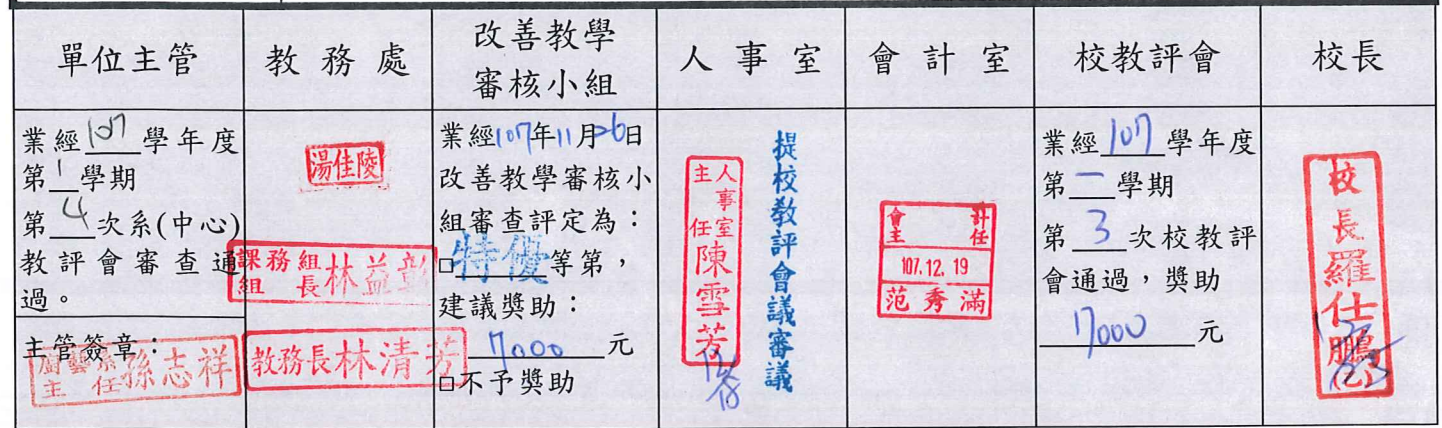 單位主管
教務處
改善教學
審核小組
人事室
會計室
校教評會
校長
業經107學年度
第1學期
第4次系(中心)
教評會審查通
過。
主管簽章：
廚藝系
主任孫志祥
湯佳陵
課務組
組長林益彰
教務長林清芳
業經107年11月26日
改善教學審核小
組審查評定為：
□特優等第，
建議獎助：
7000元
□不予獎助
人事室
主任陳雪芳
提校教評會議審議
會計
主任
107.12.19
范秀滿
業經107學年度
第一學期
第3次校教評
會通過，獎助
7000元
校長羅仕鵬